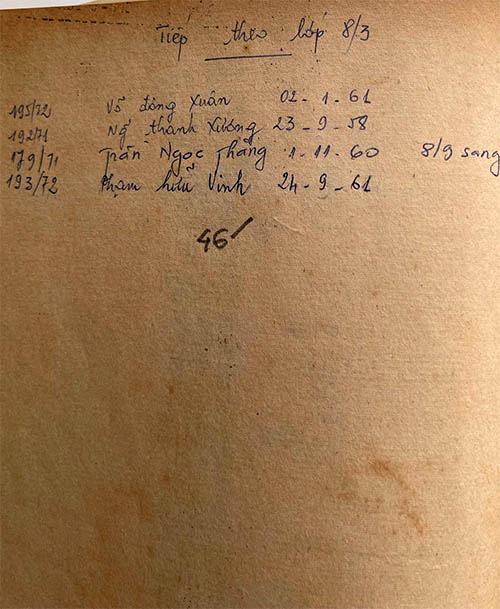 Tiếp theo lớp 8/3
195/72 Võ đông Xuân 02-1-61
192/71 Ng̃ thanh Xương 23-9-58
179/71 Trần Ngọc Thắng 1-11-60 8/9 sang
193/72 Phạm hữu Vinh 24-9-61
46/